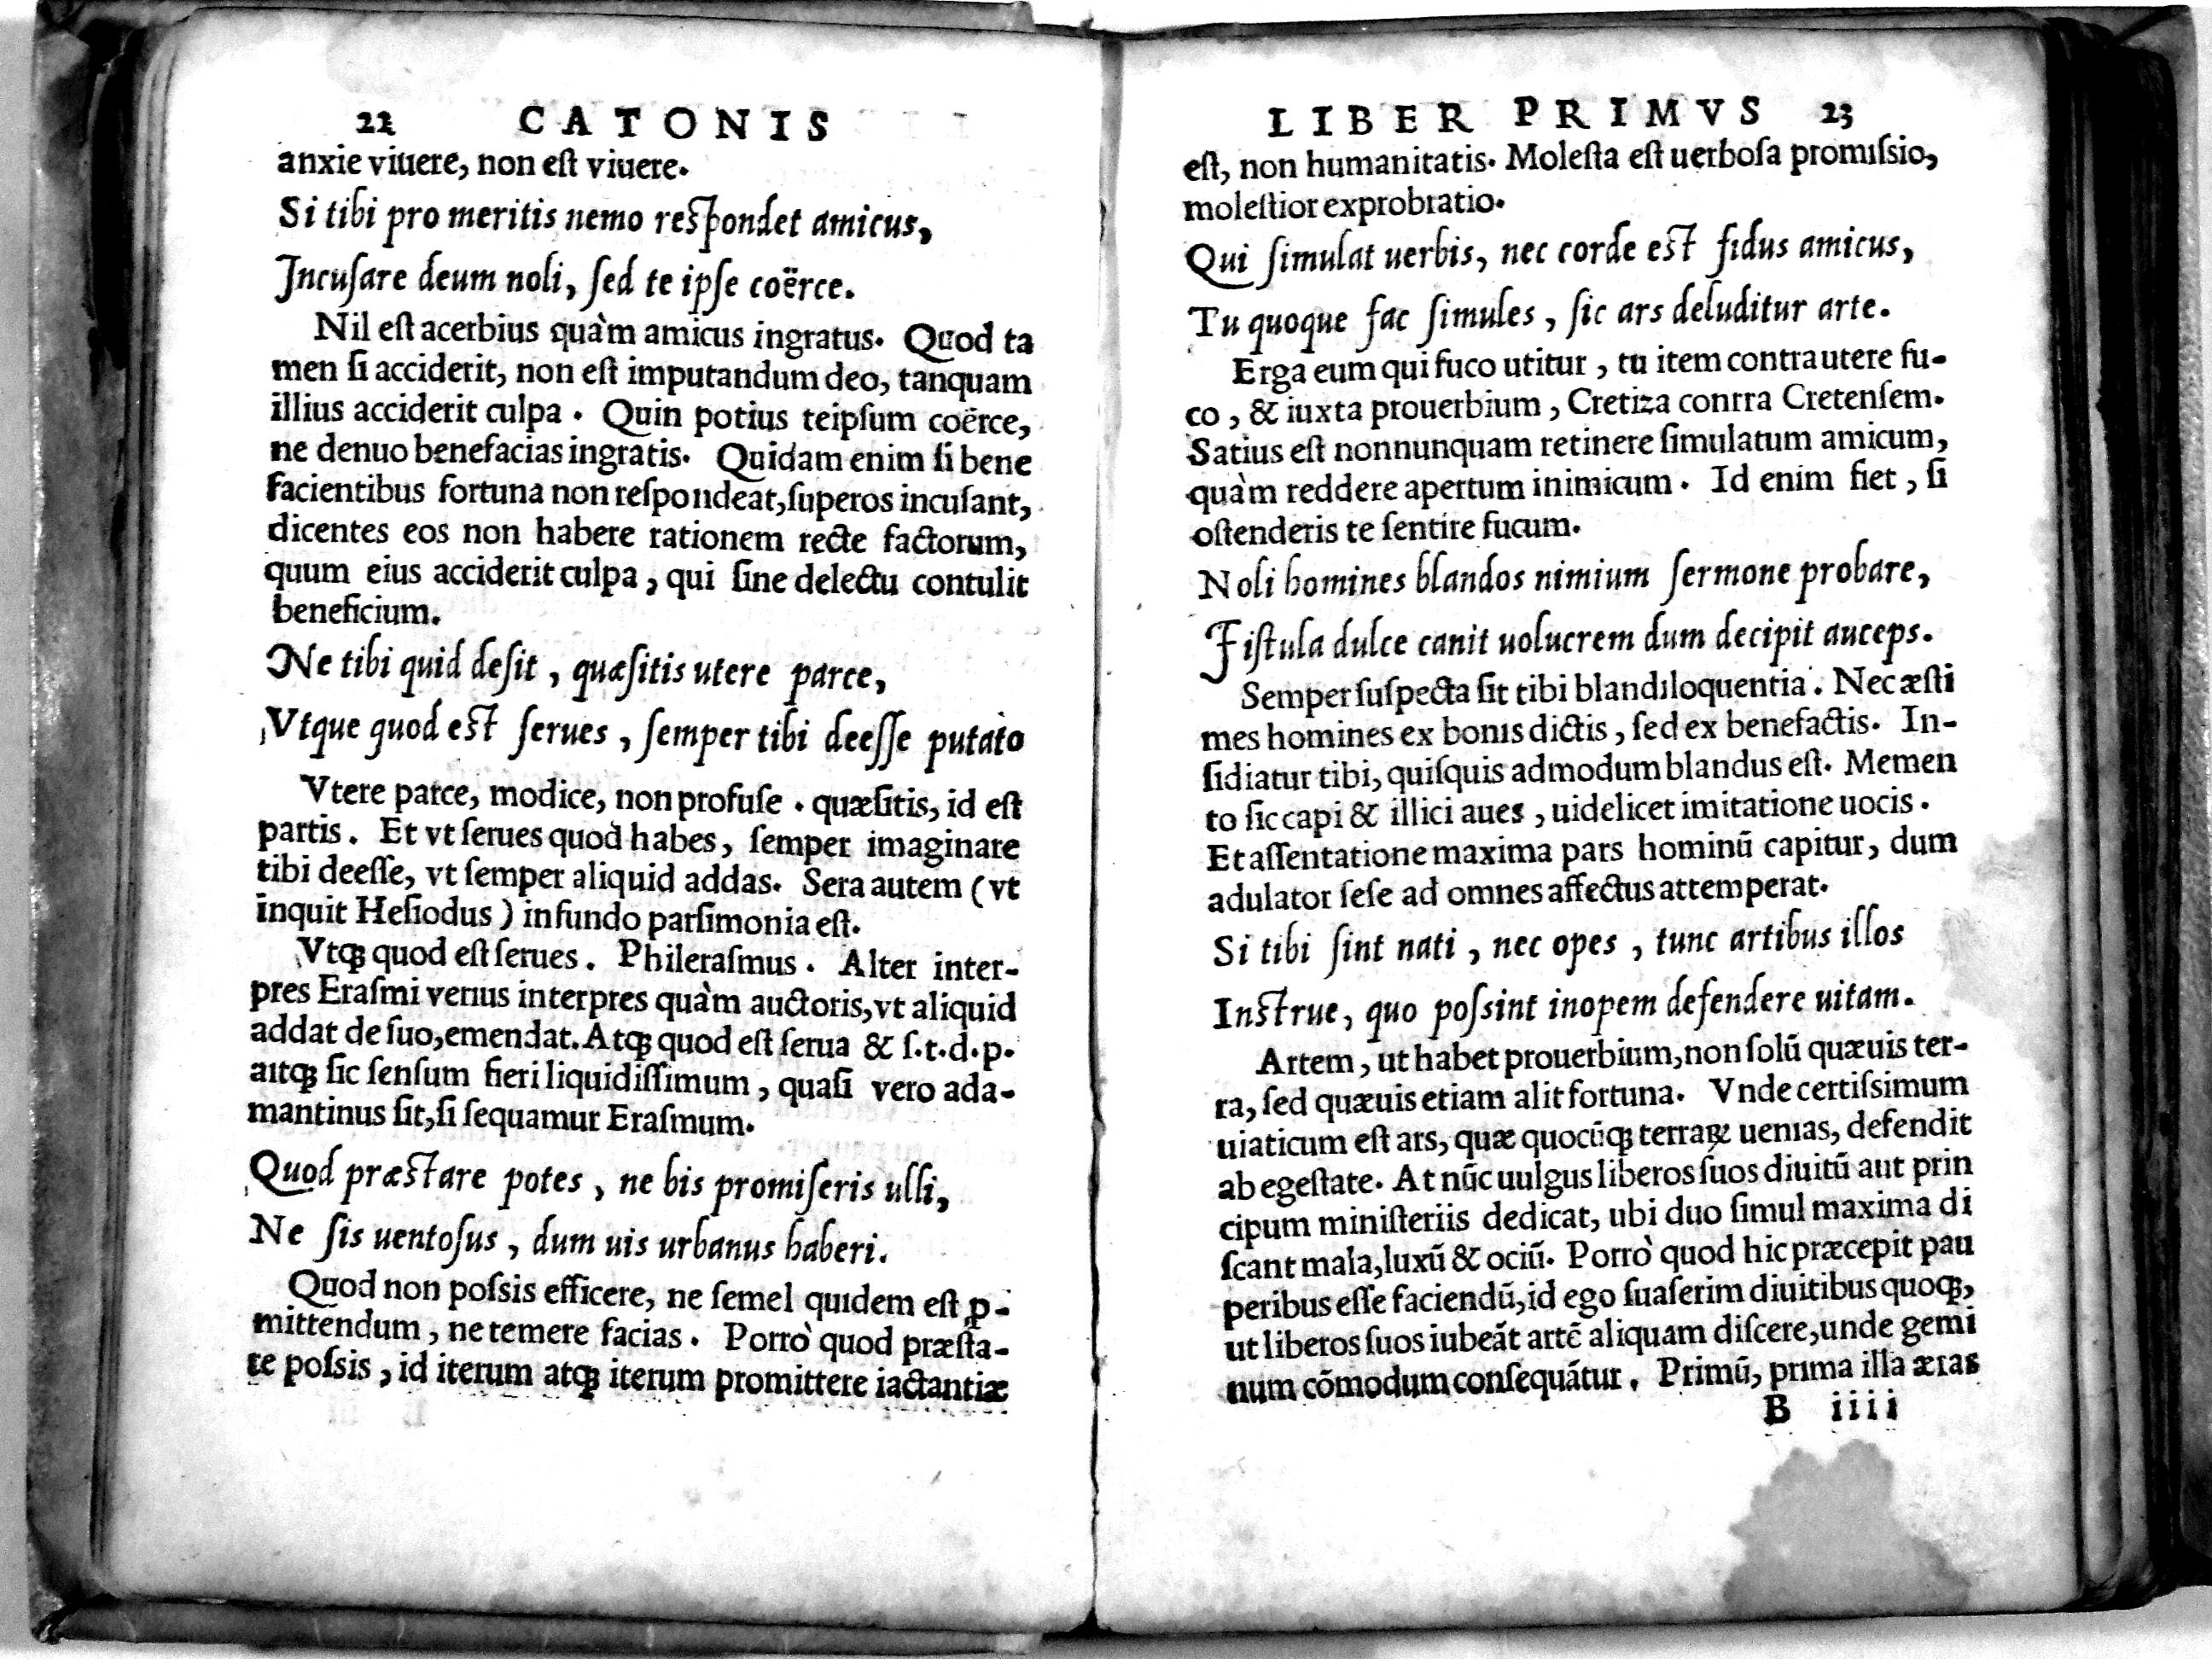 22 CATONIS
anxie viuere, non eſt viuere.
Si tibi pro meritis nemo reſpondet amicus,
Incuſare deum noli, ſed te ipſe coërce.
Nil eſt acerbius quàm amicus ingratus. Quod ta
men ſi acciderit, non eſt imputandum deo, tanquam
illius acciderit culpa. Quin potius teipſum coërce,
ne denuo benefacias ingratis. Quidam enim ſi bene
facientibus fortuna non reſpondeat, ſuperos incuſant,
dicentes eos non habere rationem recte factorum,
quum eius acciderit culpa, qui ſine delectu contulit
beneficium.
Ne tibi quid deſit, quæſitis utere parce,
Vtque quod eſt ſerues, ſemper tibi deeſſe putato
Vtere parce, modice, non profuſe. quæſitis, id eſt
partis. Et vt ſerues quod habes, ſemper imaginare
tibi deeſſe, vt ſemper aliquid addas. Sera autem (vt
inquit Heſiodus) in fundo parſimonia eſt.
Vtqꝫ quod eſt ſerues. Phileraſmus. Alter inter-
pres Eraſmi verius interpres quàm auctoris, vt aliquid
addat de ſuo, emendat. Atqꝫ quod eſt ſerua & ſ.t.d.p.
aitqꝫ ſic ſenſum fieri liquidiſſimum, quaſi vero ada-
mantinus ſit, ſi ſequamur Eraſmum.
Quod præſtare potes, ne bis promiſeris ulli,
Ne ſis uentoſus, dum uis urbanus haberi.
Quod non poſsis efficere, ne ſemel quidem eſt ꝓ-
mittendum, ne temere facias. Porrò quod præſta-
re poſsis, id iterum atqꝫ iterum promittere iactantiæ
LIBER PRIMVS 23
eſt, non humanitatis. Moleſta eſt uerboſa promiſsio,
moleſtior exprobratio.
Qui ſimulat uerbis, nec corde eſt fidus amicus,
Tu quoque fac ſimules, ſic ars deluditur arte.
Erga eum qui fuco utitur, tu item contra utere fu-
co, & iuxta prouerbium, Cretiza contra Cretenſem.
Satius eſt nonnunquam retinere ſimulatum amicum,
quàm reddere apertum inimicum. Id enim fiet, ſi
oſtenderis te ſentire fucum.
Noli homines blandos nimium ſermone probare,
Fiſtula dulce canit uolucrem dum decipit auceps.
Semper ſuſpecta ſit tibi blandiloquentia. Nec æſti
mes homines ex bonis dictis, ſed ex benefactis. In-
ſidiatur tibi, quiſquis admodum blandus eſt. Memen
to ſic capi & illici aues, uidelicet imitatione uocis.
Et aſſentatione maxima pars hominū capitur, dum
adulator ſeſe ad omnes affectus attemperat.
Si tibi ſint nati, nec opes, tunc artibus illos
Inſtrue, quo poſsint inopem defendere uitam.
Artem, ut habet prouerbium, non ſolū quæuis ter-
ra, ſed quæuis etiam alit fortuna. Vnde certiſsimum
uiaticum eſt ars, quæ quocūqꝫ terraꝝ uenias, defendit
ab egeſtate. At nūc uulgus liberos ſuos diuitū aut prin
cipum miniſteriis dedicat, ubi duo ſimul maxima di
ſcant mala, luxū & ociū. Porrò quod hic præcepit pau
peribus eſſe faciendū, id ego ſuaſerim diuitibus quoqꝫ,
ut liberos ſuos iubeāt artē aliquam diſcere, unde gemi
num cōmodum conſequātur. Primū, prima illa ætas
B iiii